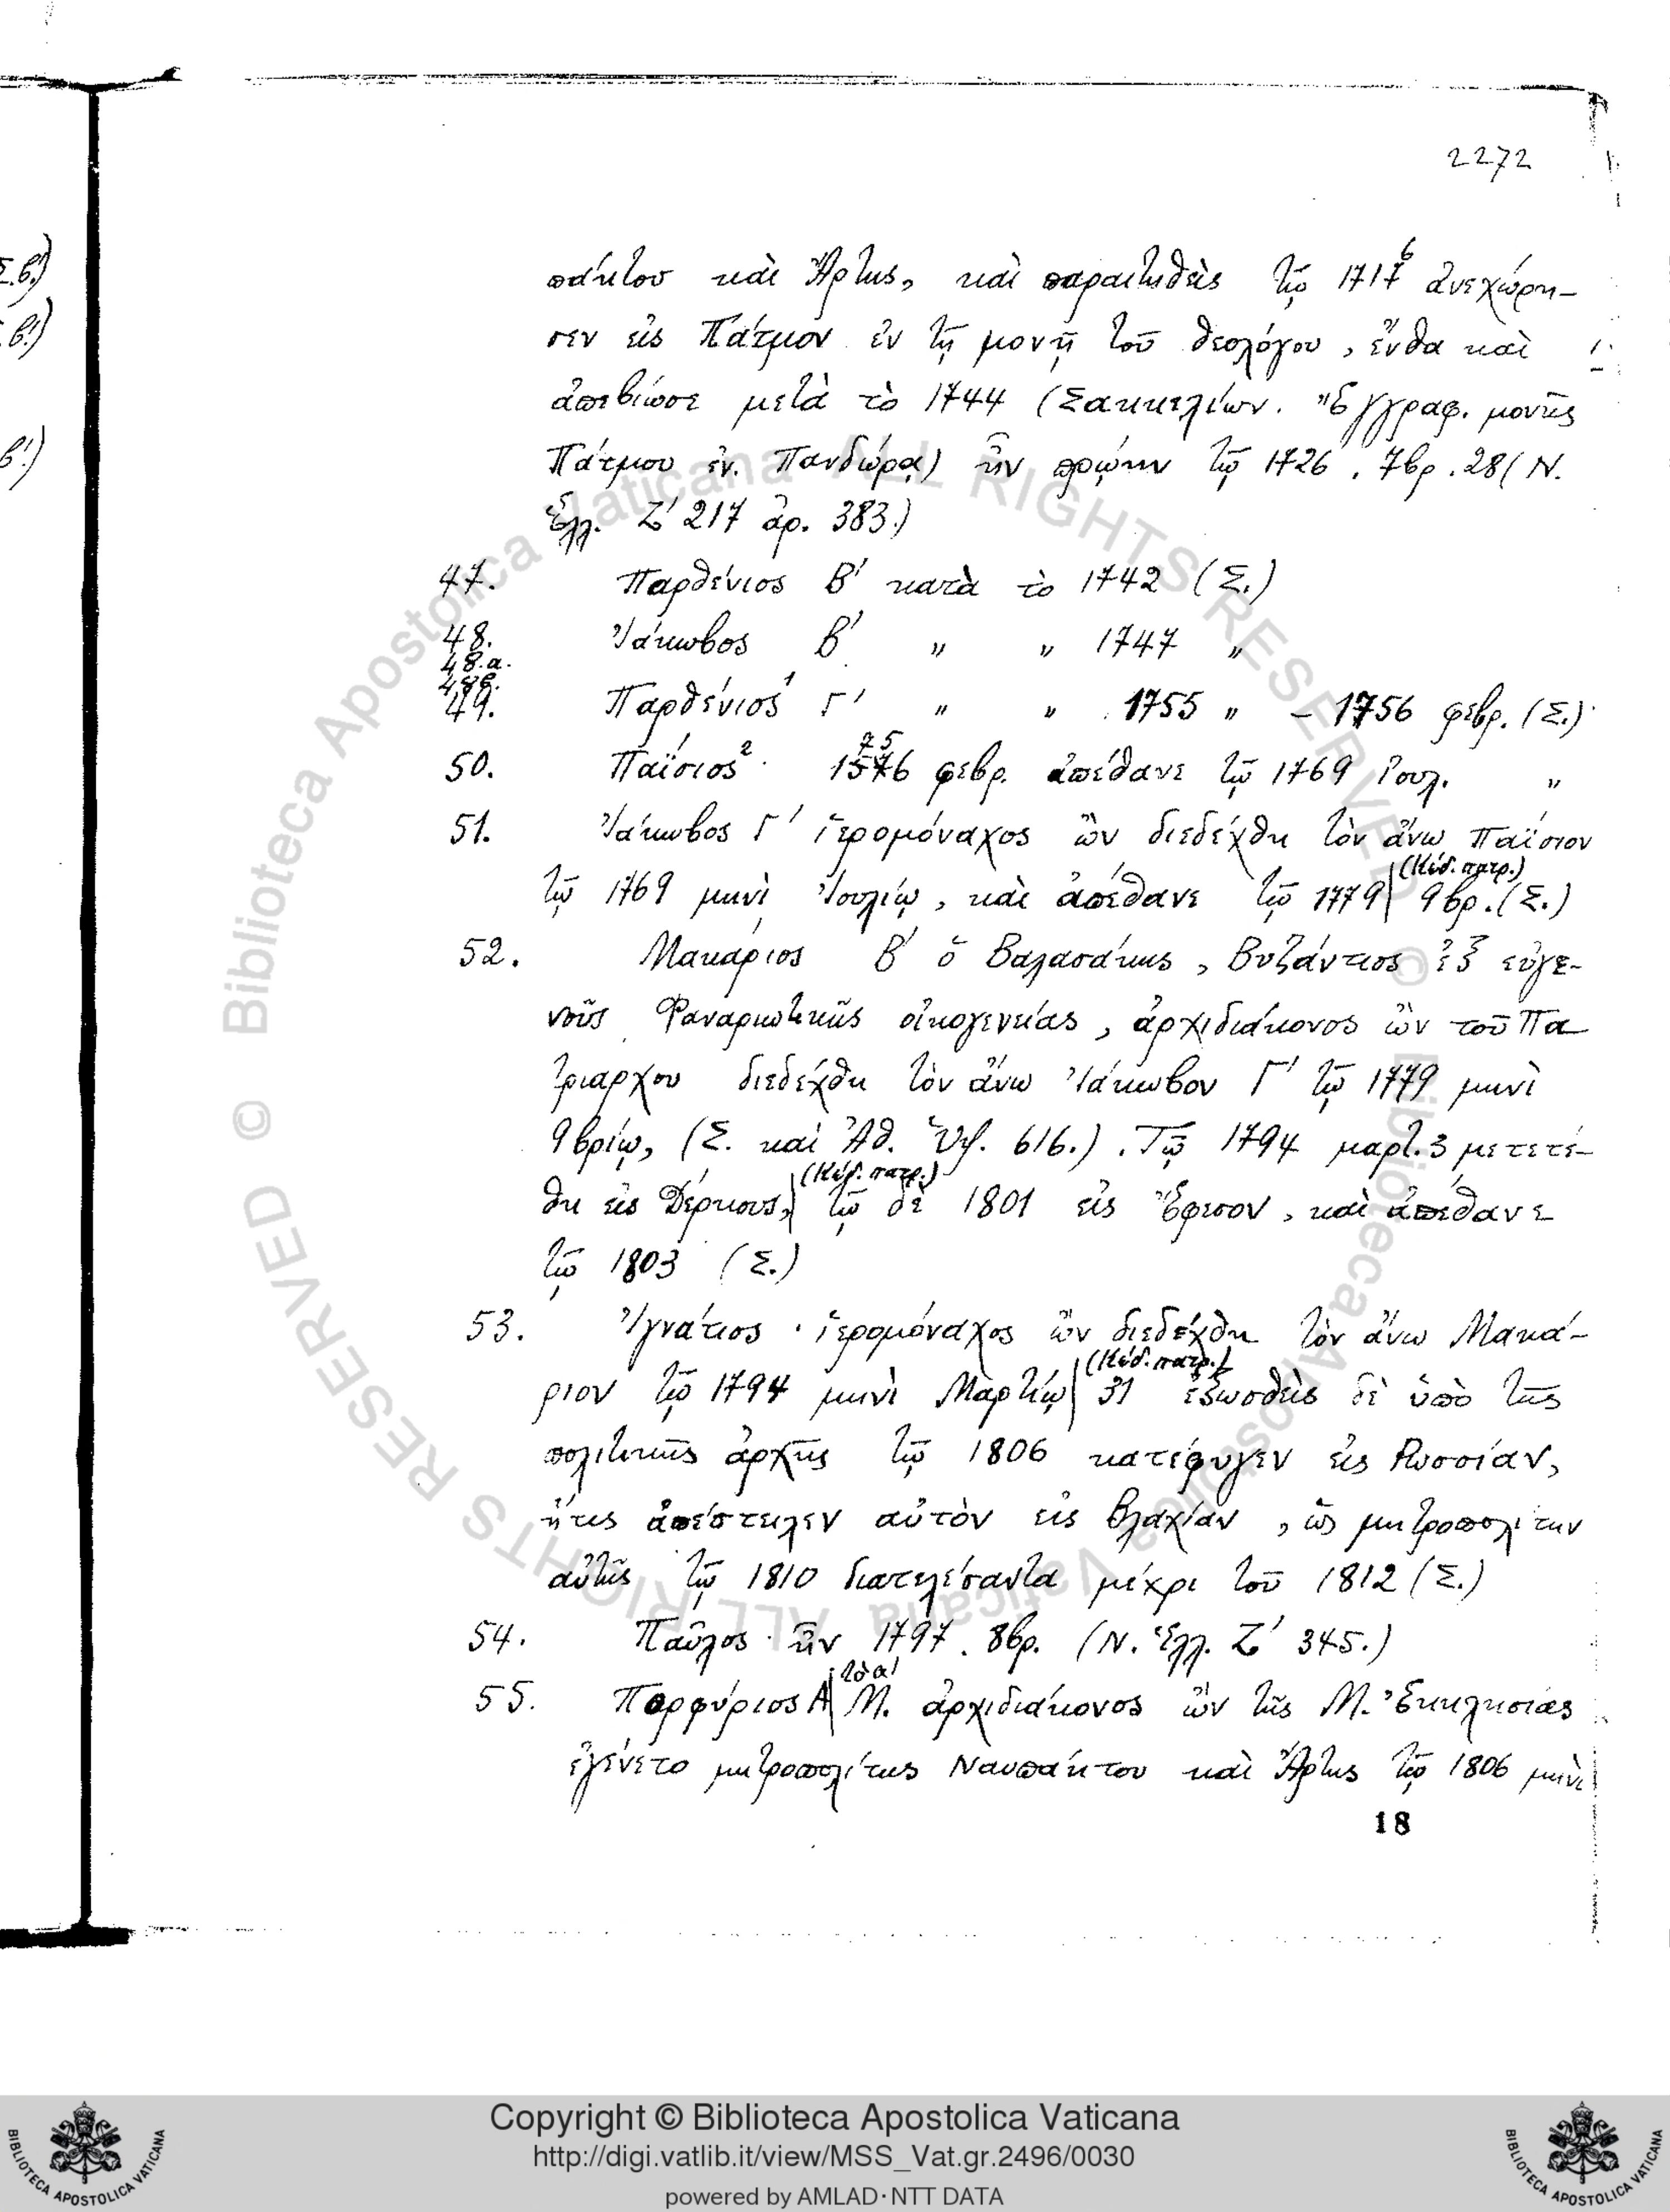 2272
πάκτου καὶ Ἄρτης, καὶ παραιτηθεὶς τῷ 1716 ἀνεχώρη-
σεν εἰς Πάτμον ἐν τῇ μονῇ τοῦ Θεολόγου, ἔνθα καὶ
ἀπεβίωσε μετὰ τὸ 1744 (Σακκελίων. Ἔγγραφ. μονῆς
Πάτμου ἐν. Πανδώρᾳ) ἦν πρῴην τῷ 1726. 7βρ. 28 (Ν.
Ἑλλ. Ζ' 217 ἀρ. 383.)
47. Παρθένιος Β' κατὰ τὸ 1742 (Σ.)
48. Ἰάκωβος Β' " " 1747 "
48.α.
48β.
49. Παρθένιος¹ Γ' " " 1755 " – 1756 φεβρ. (Σ.)
75
50. Παΐσιος² · 1576 φεβρ. ἀπέθανε τῷ 1769 Ἰουλ. "
51. Ἰάκωβος Γ' ἱερομόναχος ὢν διεδέχθη τὸν ἄνω Παΐσιον
(Κώδ. πατρ.)
τῷ 1769 μηνὶ Ἰουλίῳ, καὶ ἀπέθανε τῷ 1779 | 9βρ. (Σ.)
52. Μακάριος Β' ὁ Βαλασάκης, Βυζάντιος ἐξ εὐγε-
νοῦς Φαναριωτικῆς οἰκογενείας, ἀρχιδιάκονος ὢν τοῦ Πα
τριάρχου διεδέχθη τὸν ἄνω Ἰάκωβον Γ' τῷ 1779 μηνὶ
9βρίῳ, (Σ. καὶ Ἀθ. Ὑψ. 616.). Τῷ 1794 μαρτ. 3 μετετέ-
(Κώδ. πατρ.)
θη εἰς Δέρκους, | τῷ δὲ 1801 εἰς Ἔφεσον, καὶ ἀπέθανε
τῷ 1803 (Σ.)
53. Ἰγνάτιος · ἱερομόναχος ὢν διεδέχθη τὸν ἄνω Μακά-
(Κώδ. πατρ.)
ριον τῷ 1794 μηνὶ Μαρτίῳ | 31 ἐξωσθεὶς δὲ ὑπὸ τῆς
πολιτικῆς ἀρχῆς τῷ 1806 κατέφυγεν εἰς Ρωσσίαν,
ἥτις ἀπέστειλεν αὐτὸν εἰς Βλαχίαν, ὡς μητροπολίτην
αὐτῆς τῷ 1810 διατελέσαντα μέχρι τοῦ 1812 (Σ.)
54. Παῦλος · ἦν 1797. 8βρ. (Ν. Ἑλλ. Ζ' 345.)
τὸ α'
55. Πορφύριος Α | Μ. ἀρχιδιάκονος ὢν τῆς Μ. Ἐκκλησίας
ἐγένετο μητροπολίτης Ναυπάκτου καὶ Ἄρτης τῷ 1806 μηνὶ
18
© Biblioteca Apostolica Vaticana ALL RIGHTS RESERVED © Biblioteca Apostolica Vaticana ALL RIGHTS RESERVED
Copyright © Biblioteca Apostolica Vaticana
http://digi.vatlib.it/view/MSS_Vat.gr.2496/0030
powered by AMLAD·NTT DATA
BIBLIOTECA APOSTOLICA VATICANA
BIBLIOTECA APOSTOLICA VATICANA